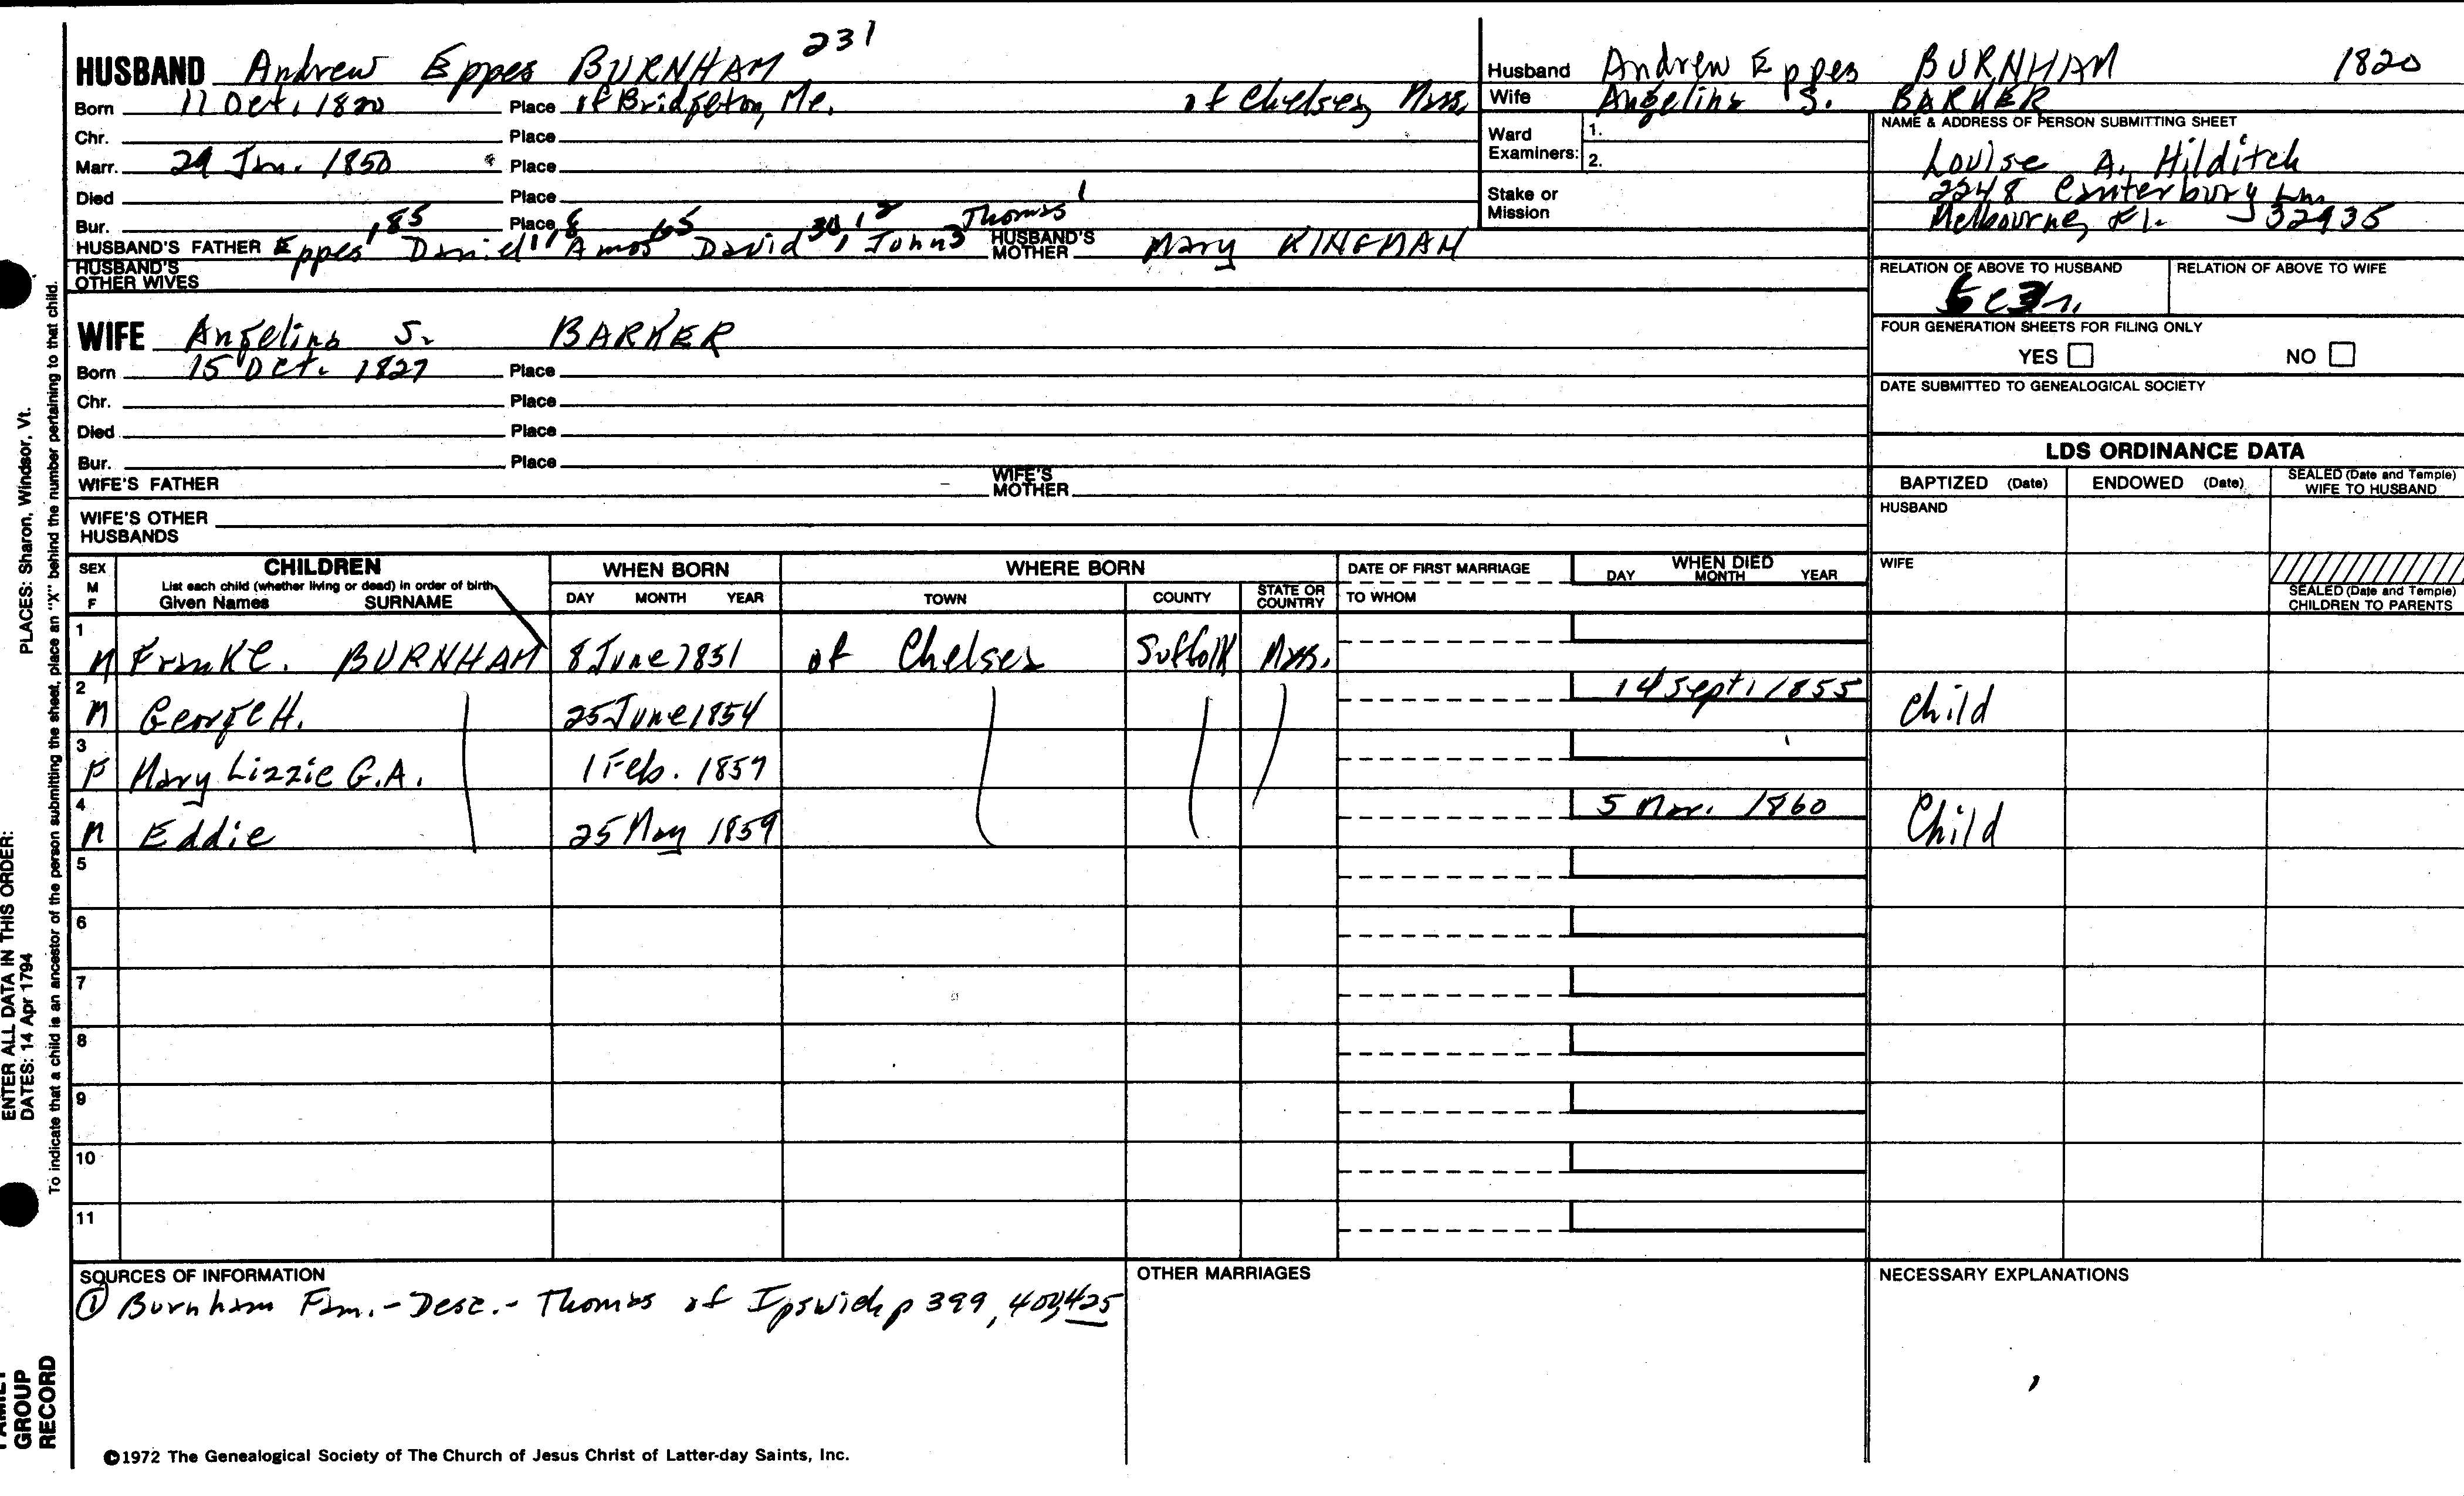 HUSBAND Andrew Eppes BURNHAM 231
Born 11 Oct. 1820 Place of Bridgeton, Me. of Chelsea, Mass.
Chr. Place
Marr. 29 Jan. 1850 Place
Died Place
Bur. Place
HUSBAND'S FATHER Eppes, 185 Daniel, 118 Amos 65 David 30, 12 John 3 Thomas 1 HUSBAND'S MOTHER Mary KINGMAN
HUSBAND'S OTHER WIVES
WIFE Angelina S. BARKER
Born 15 Oct. 1827 Place
Chr. Place
Died Place
Bur. Place
WIFE'S FATHER WIFE'S MOTHER
WIFE'S OTHER HUSBANDS
Husband Andrew Eppes BURNHAM 1820
Wife Angelina S. BARKER
Ward Examiners: 1.
2.
Stake or Mission
NAME & ADDRESS OF PERSON SUBMITTING SHEET
Louise A. Hilditch
2248 Canterbury Ln
Melbourne, Fl. 32935
RELATION OF ABOVE TO HUSBAND RELATION OF ABOVE TO WIFE
FOUR GENERATION SHEETS FOR FILING ONLY
YES NO
DATE SUBMITTED TO GENEALOGICAL SOCIETY
LDS ORDINANCE DATA
BAPTIZED (Date) ENDOWED (Date) SEALED (Date and Temple) WIFE TO HUSBAND
HUSBAND
WIFE
SEALED (Date and Temple) CHILDREN TO PARENTS
SEX M F
CHILDREN
List each child (whether living or dead) in order of birth
Given Names SURNAME
WHEN BORN
DAY MONTH YEAR
WHERE BORN
TOWN COUNTY STATE OR COUNTRY
DATE OF FIRST MARRIAGE
TO WHOM
WHEN DIED
DAY MONTH YEAR
1 M Frank C. BURNHAM 8 June 1851 of Chelsea Suffolk Mass.
2 M George H. 25 June 1854 14 Sept. 1855 Child
3 F Mary Lizzie G.A. 1 Feb. 1857
4 M Eddie 25 May 1859 5 Mar. 1860 Child
5
6
7
8
9
10
11
SOURCES OF INFORMATION
① Burnham Fam. - Desc. - Thomas of Ipswich p 399, 400, 425
OTHER MARRIAGES
NECESSARY EXPLANATIONS
©1972 The Genealogical Society of The Church of Jesus Christ of Latter-day Saints, Inc.
ENTER ALL DATA IN THIS ORDER:
DATES: 14 Apr 1794 PLACES: Sharon, Windsor, Vt.
To indicate that a child is an ancestor of the person submitting the sheet, place an "X" behind the number pertaining to that child.
FAMILY
GROUP
RECORD